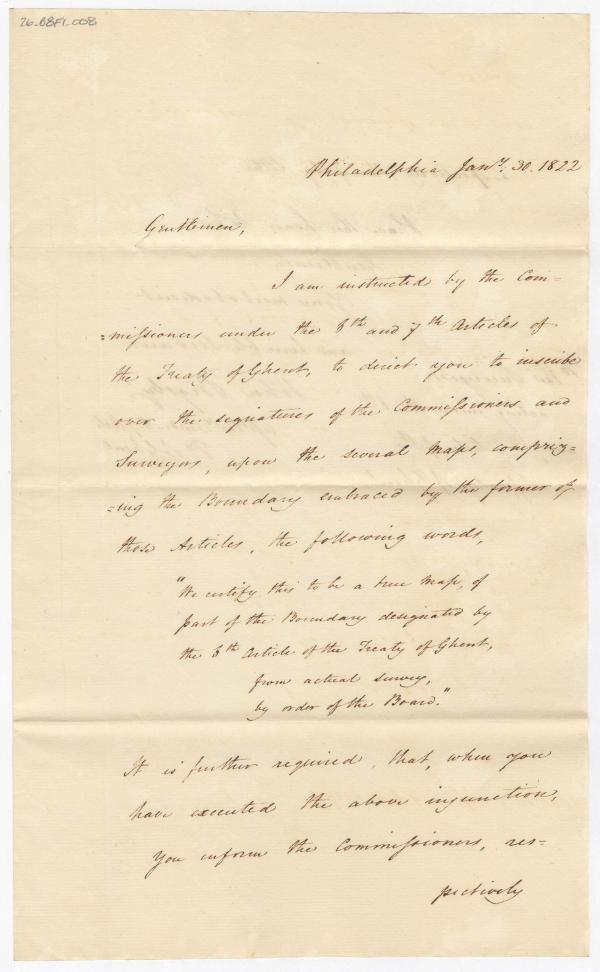 26.B8F1.008
Philadelphia Jany. 30. 1822
Gentlemen,
I am instructed by the Com=
=missioners under the 6th and 7th Articles of
the Treaty of Ghent, to direct you to inscribe
over the signatures of the Commissioners and
Surveyors, upon the several Maps, compriz=
=ing the Boundary embraced by the former of
those Articles, the following words,
"We certify this to be a true Map, of
part of the Boundary designated by
the 6th Article of the Treaty of Ghent,
from actual survey,
by order of the Board."
It is further required, that, when you
have executed the above injunction,
you inform the Commissioners, res=
pectively